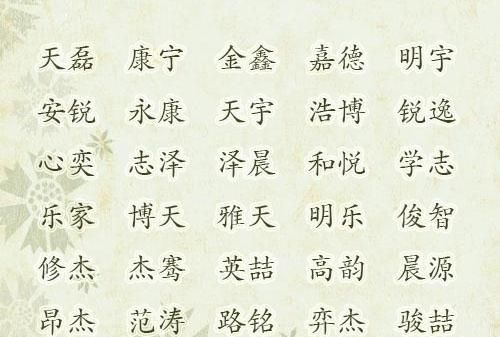 天磊 康宁 金鑫 嘉德 明宇
安锐 永康 天宇 浩博 锐逸
心奕 志泽 泽晨 和悦 学志
乐家 博天 雅天 明乐 俊智
修杰 杰骞 英喆 高韵 晨源
昂杰 范涛 路铭 弈杰 骏喆